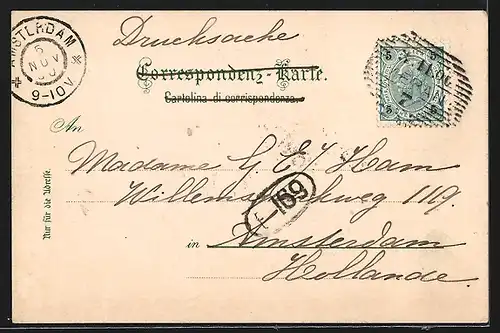 AMSTERDAM
6
NOV
9-10V
Drucksache
Correspondenz-Karte.
Cartolina di corrispondenza.
5 5
5 5
An
Madame G
Ham
119.
F-169
in Amsterdam
Hollande.
Nur für die Adresse.